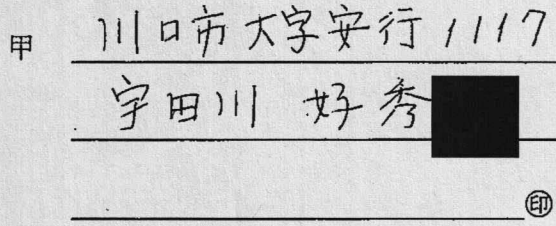 甲 川口市大字安行1117
宇田川 好秀
㊞